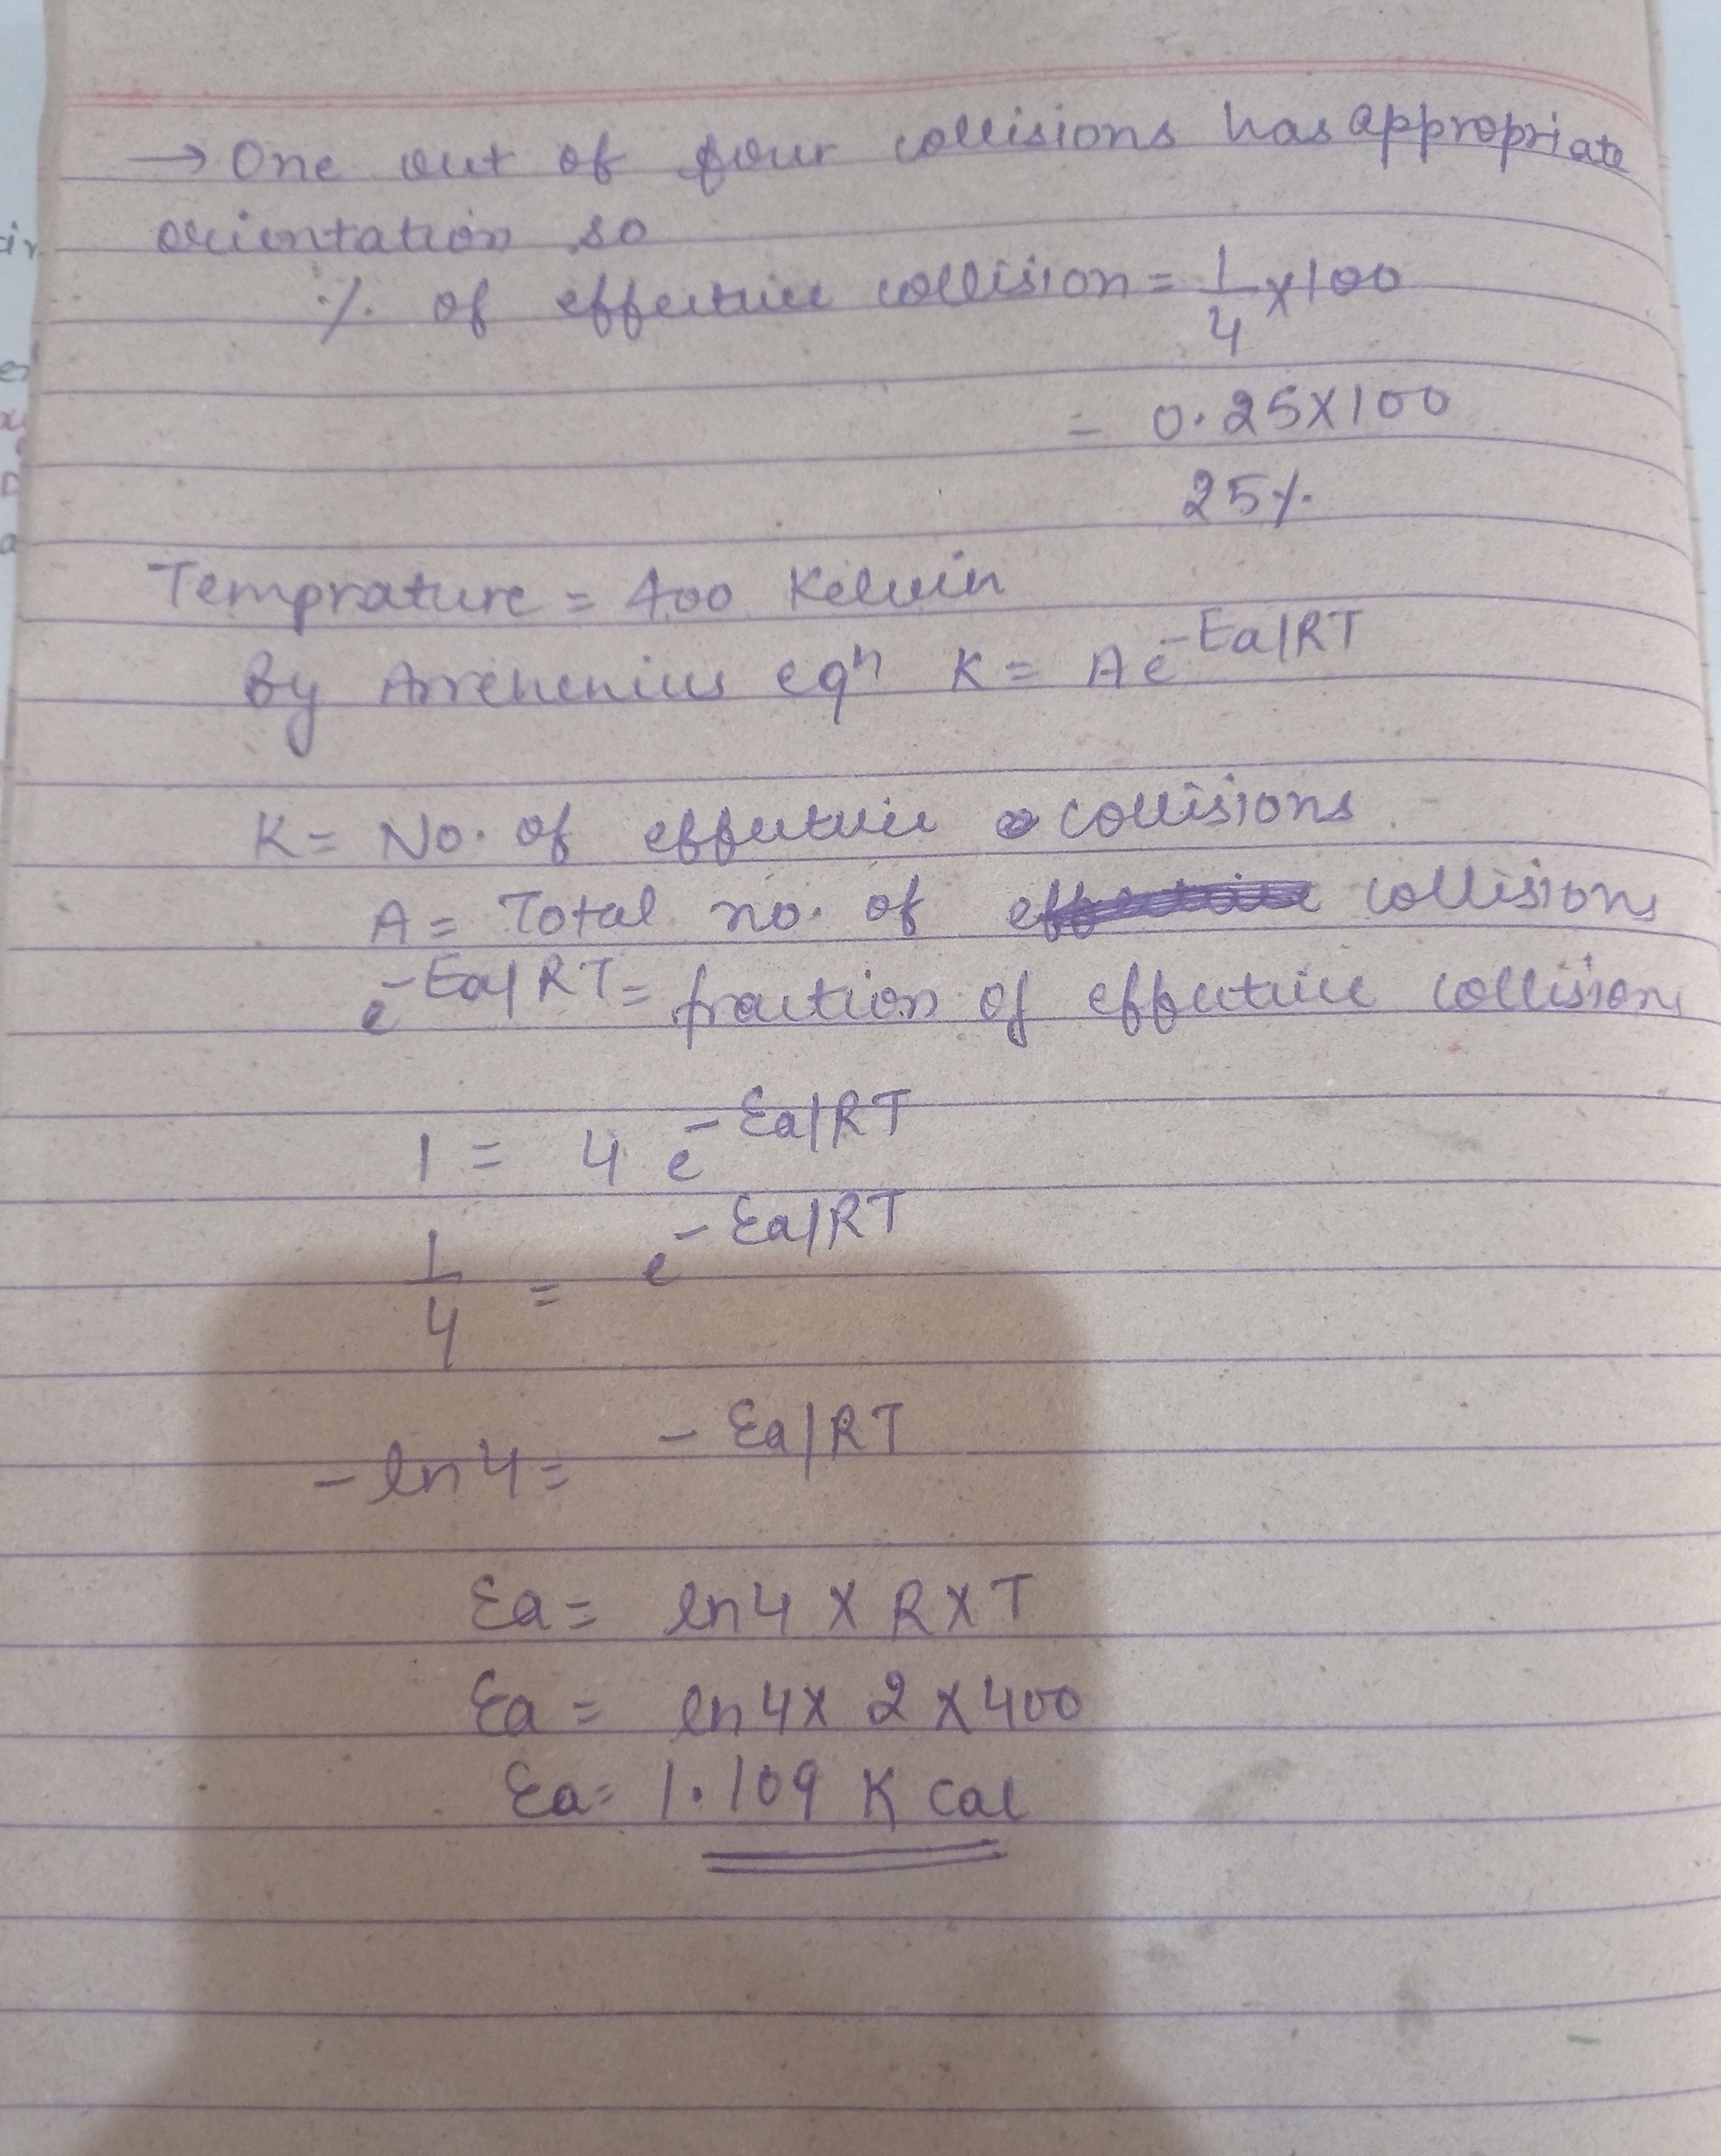 → One out of four collisions has appropriate
orientation so
% of effective collision = 1/4 x 100
= 0.25 X 100
25%
Temprature = 400 Kelvin
By Arrehenius eqn K = A e^-Ea/RT
K = No. of effective collisions
A = Total no. of collisions
e^-Ea/RT = fraction of effective collisions
1 = 4 e^-Ea/RT
1/4 = e^-Ea/RT
- ln 4 = - Ea/RT
Ea = ln4 X R X T
Ea = ln4 x 2 x 400
Ea = 1.109 K Cal